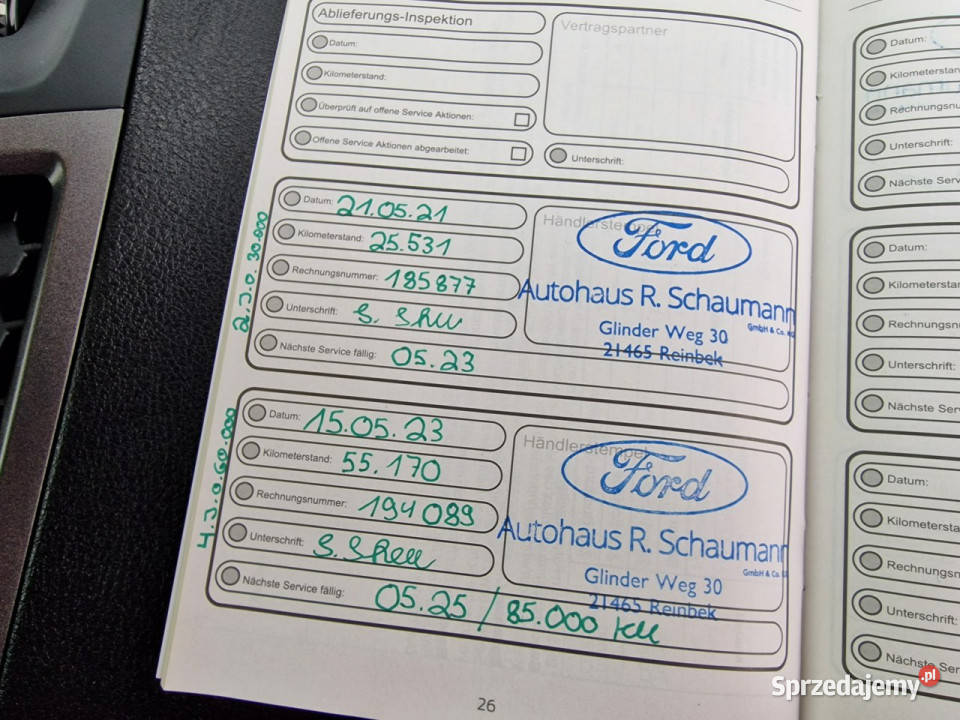 Ablieferungs-Inspektion
Datum:
Kilometerstand:
Überprüft auf offene Service Aktionen:
Offene Service Aktionen abgearbeitet:
Vertragspartner
Unterschrift:
2.J.o.30.000
Datum: 21.05.21
Kilometerstand: 25.531
Rechnungsnummer: 185877
Unterschrift:
Nächste Service fällig: 05.23
Händlerstempel
Ford
Autohaus R. Schaumann
GmbH & Co. KG
Glinder Weg 30
21465 Reinbek
4.J.o.60.000
Datum: 15.05.23
Kilometerstand: 55.170
Rechnungsnummer: 194089
Unterschrift:
Nächste Service fällig: 05.25 / 85.000 km
Händlerstempel
Ford
Autohaus R. Schaumann
GmbH & Co.
Glinder Weg 30
21465 Reinbek
26
Datum:
Kilometerstan
Rechnungsnu
Unterschrift:
Nächste Serv
Datum:
Kilometerstan
Rechnungsnu
Unterschrift:
Nächste Ser
Datum:
Kilometersta
Rechnungsn
Unterschrift:
Nächste Ser
Sprzedajemy.pl